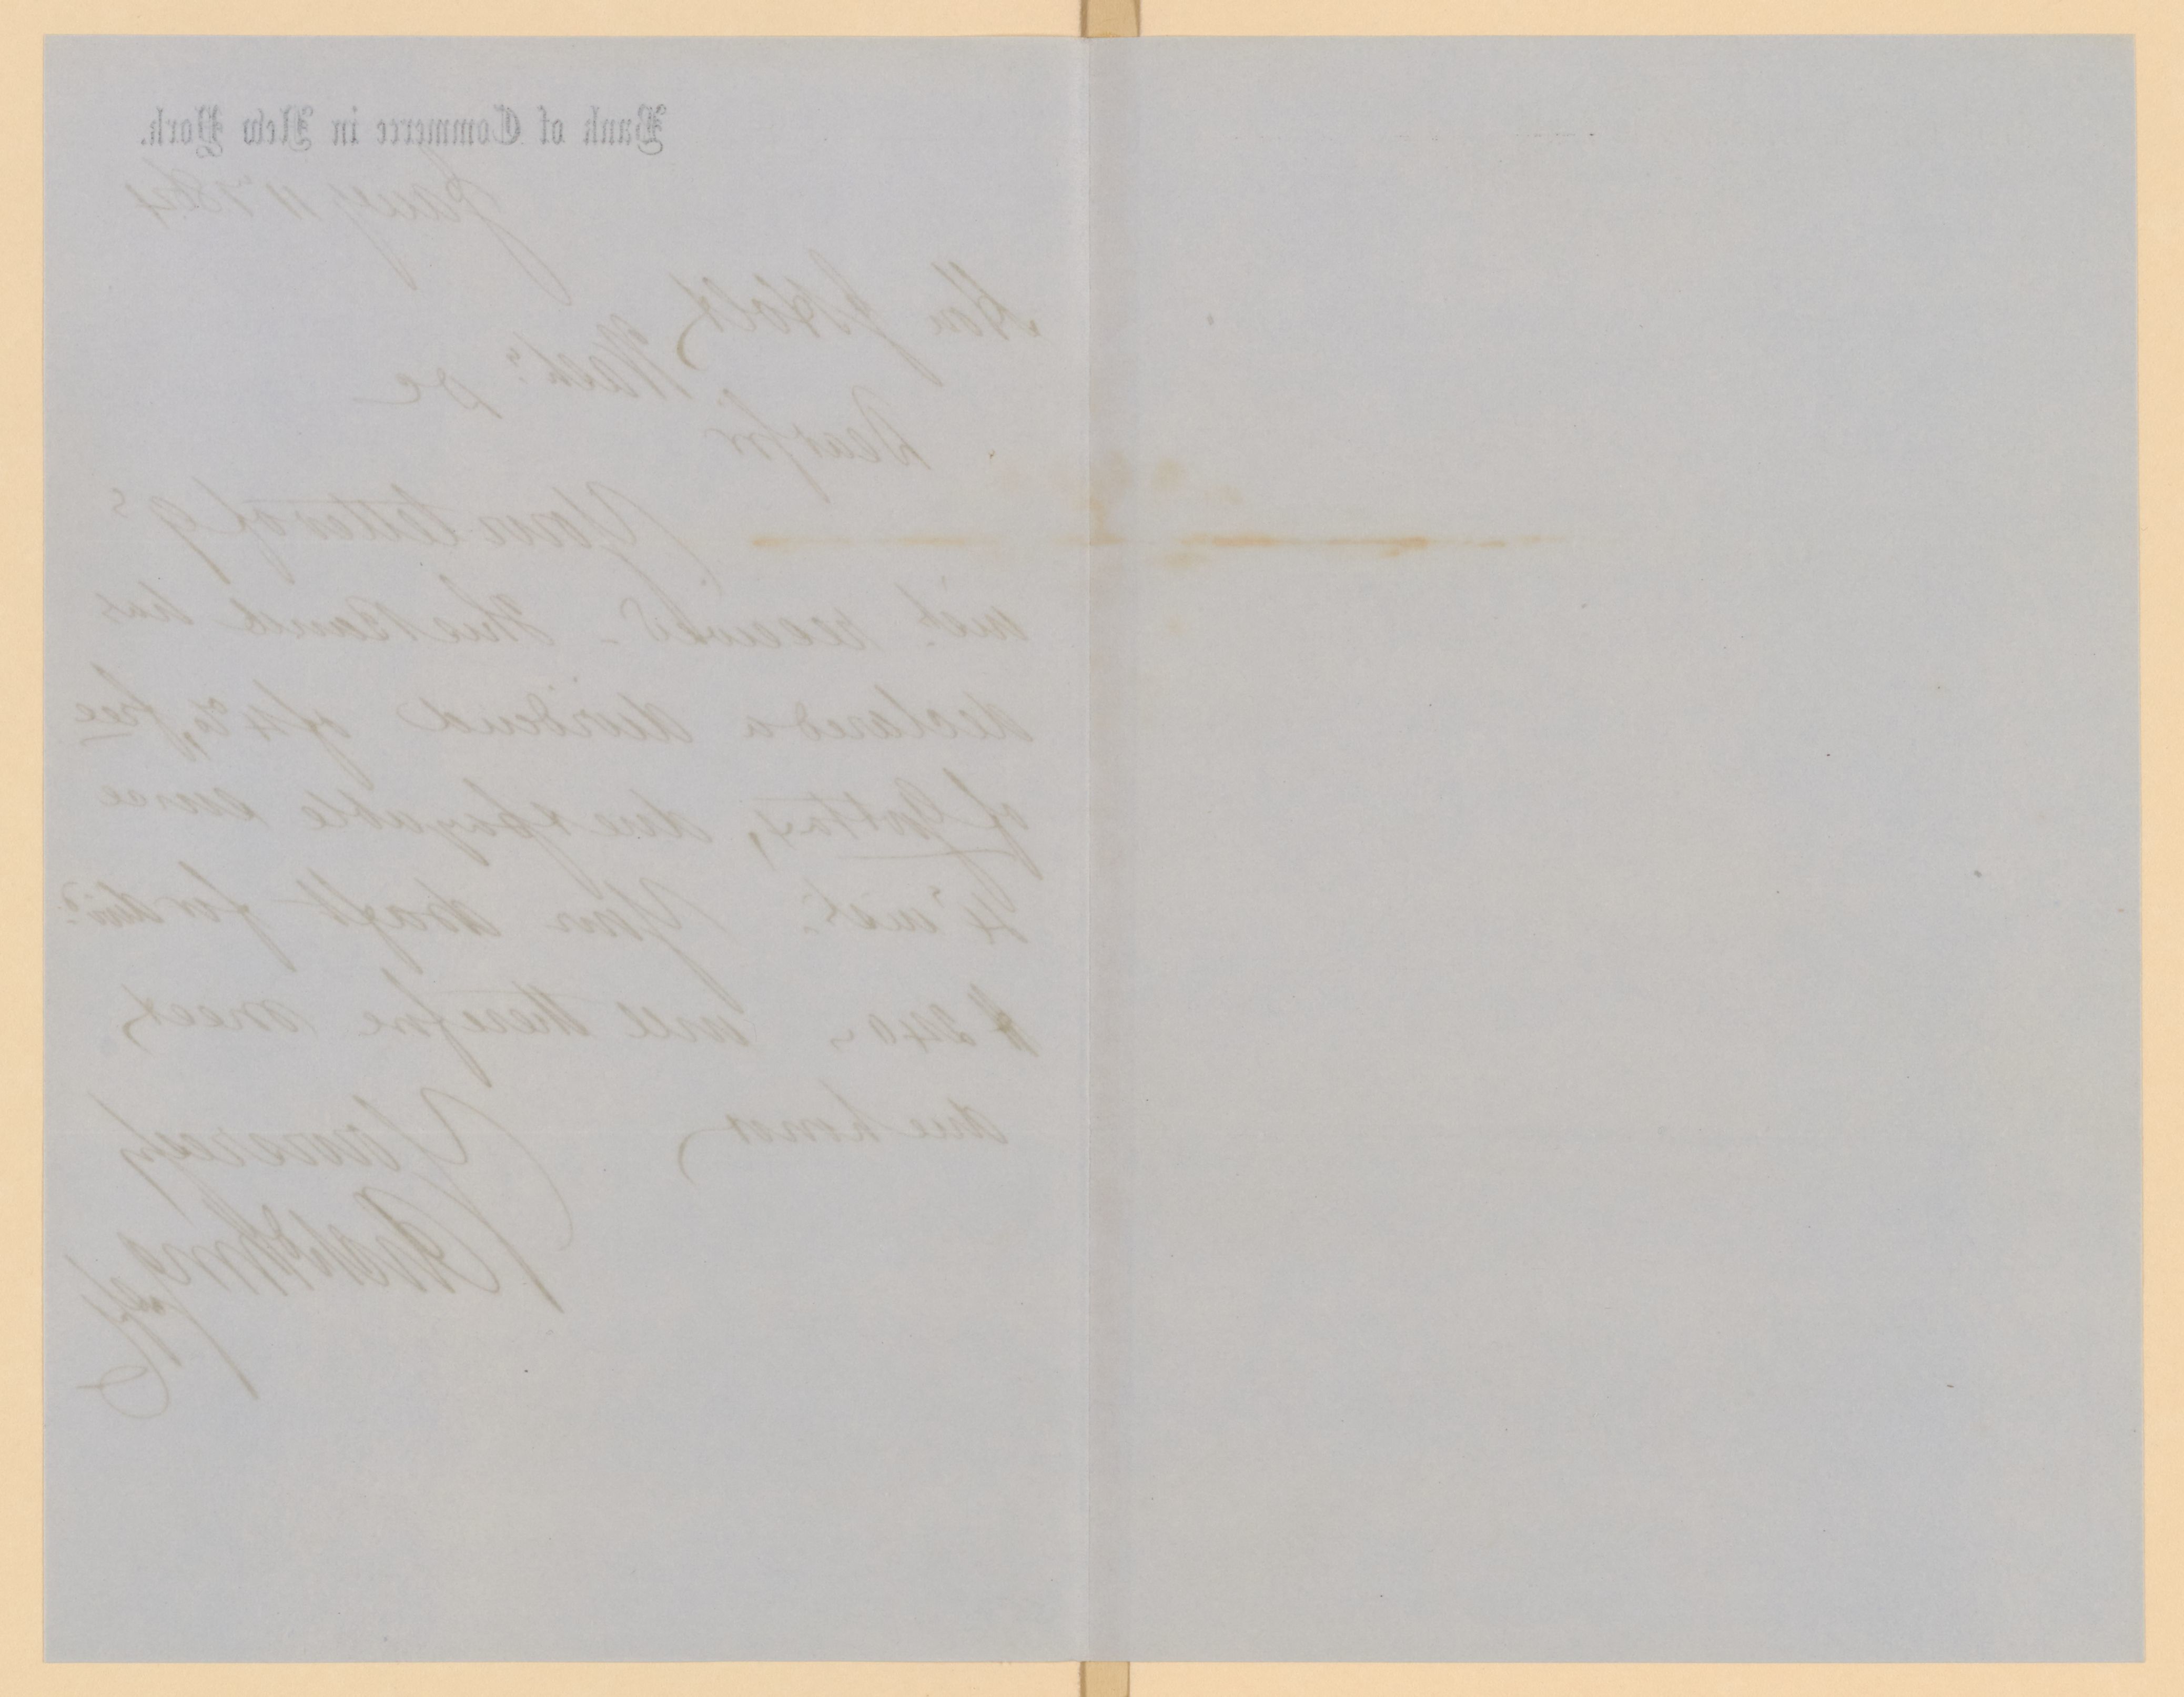 Bank of Commerce in New York.
Jany 11 1864
Hon J Holt
Washn DC
Dear Sir
Your letter of 9
inst. received - This Bank has
declared a dividend of 4 %, free
of Govt tax, due & payable since
4 inst. Your draft for divd
$240 will therefore meet
due honor
Yours resply